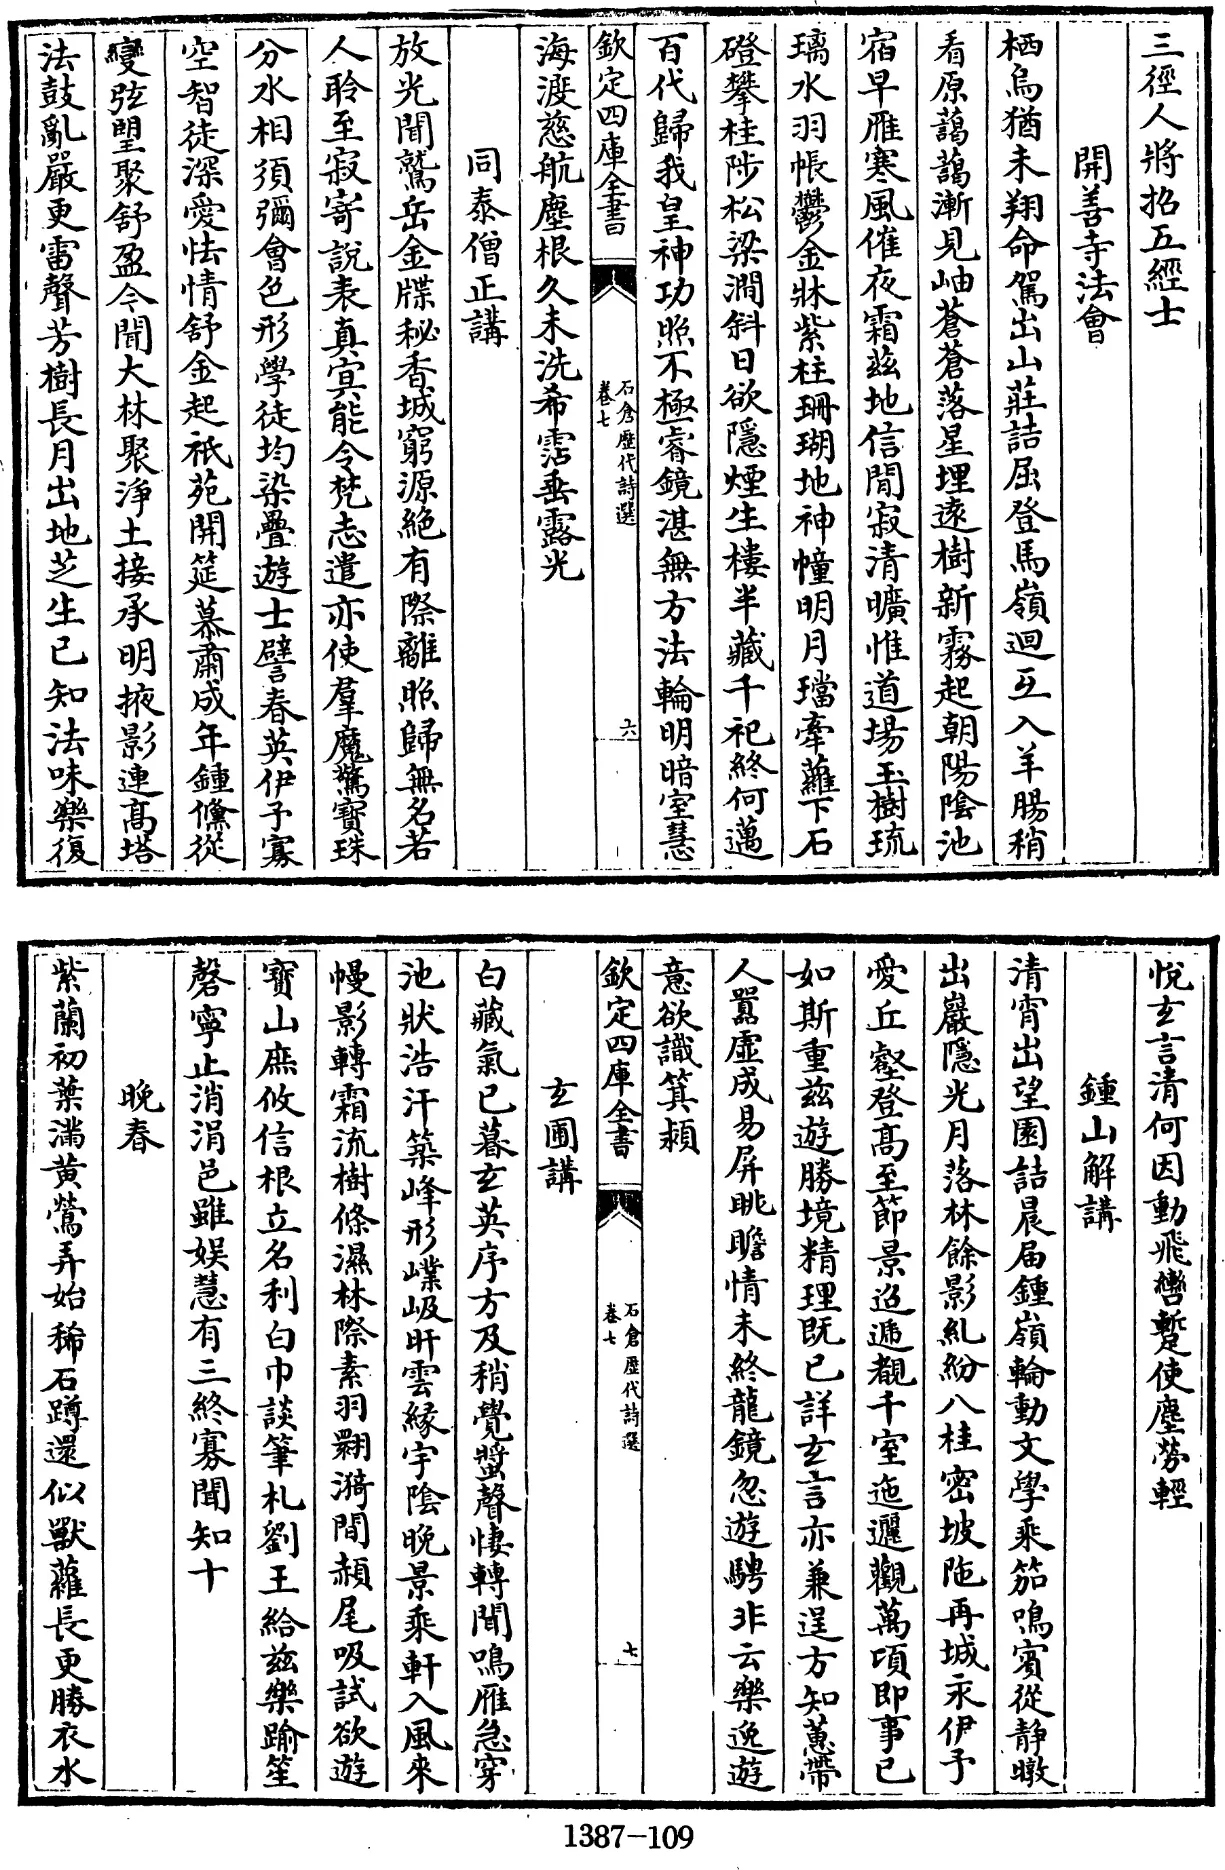 三徑人將招五經士
開善寺法會
栖烏猶未翔命駕出山莊詰屈登馬嶺迴互入羊腸稍
看原藹藹漸見岫蒼蒼落星埋遠樹新霧起朝陽陰池
宿早雁寒風催夜霜兹地信閒寂清曠惟道場玉樹琉
璃水羽帳鬱金牀紫柱珊瑚地神幢明月璫牽蘿下石
磴攀桂陟松梁澗斜日欲隱煙生樓半藏千祀終何邁
百代歸我皇神功照不極睿鏡湛無方法輪明暗室慧
欽定四庫全書
石倉歷代詩選
卷七
六
海渡慈航塵根久未洗希霑垂露光
同泰僧正講
放光聞鷲岳金牒秘香城窮源絶有際離照歸無名若
人聆至寂寄說表真冥能令梵志遣亦使羣魔驚寶珠
分水相須彌會色形學徒均染疊遊士譬春英伊予寡
空智徒深愛怯情舒金起祇苑開筵慕肅成年鍾儵從
變弦望聚舒盈今聞大林聚淨土接承明掖影連高塔
法鼓亂嚴更雷聲芳樹長月出地芝生已知法味樂復
悅玄言清何因動飛轡暫使塵勞輕
鍾山解講
清宵出望園詰晨届鍾嶺輪動文學乘笳鳴賓從静暾
出巖隱光月落林餘影糺紛八桂密坡陁再城永伊予
愛丘壑登高至節景迢遞覩千室迤邐觀萬頃即事已
如斯重兹遊勝境精理既已詳玄言亦兼逞方知蕙帶
人囂虛成易屏眺瞻情未終龍鏡忽遊騁非云樂逸遊
意欲識箕潁
欽定四庫全書
石倉歷代詩選
卷七
七
玄圃講
白藏氣已暮玄英序方及稍覺螿聲悽轉聞鳴雁急穿
池狀浩汗築峰形嶪岋旰雲緣宇陰晚景乘軒入風來
幔影轉霜流樹條濕林際素羽翾漪間赬尾吸試欲遊
寶山庶攸信根立名利白巾談筆札劉王給兹樂踰笙
磬寧止消涓邑雖娱慧有三終寡聞知十
晚春
紫蘭初葉滿黄鶯弄始稀石蹲還似獸蘿長更勝衣水
1387-109